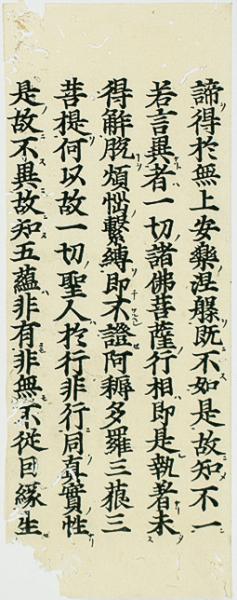 諦得於無上安樂涅槃既不如是故知不一
若言異者一切諸佛菩薩行相即是執著未
得解脫煩惱繫縛即不證阿耨多羅三藐三
菩提何以故一切聖人於行非行同真實性
是故不異故知五蘊非有非無不從因緣生